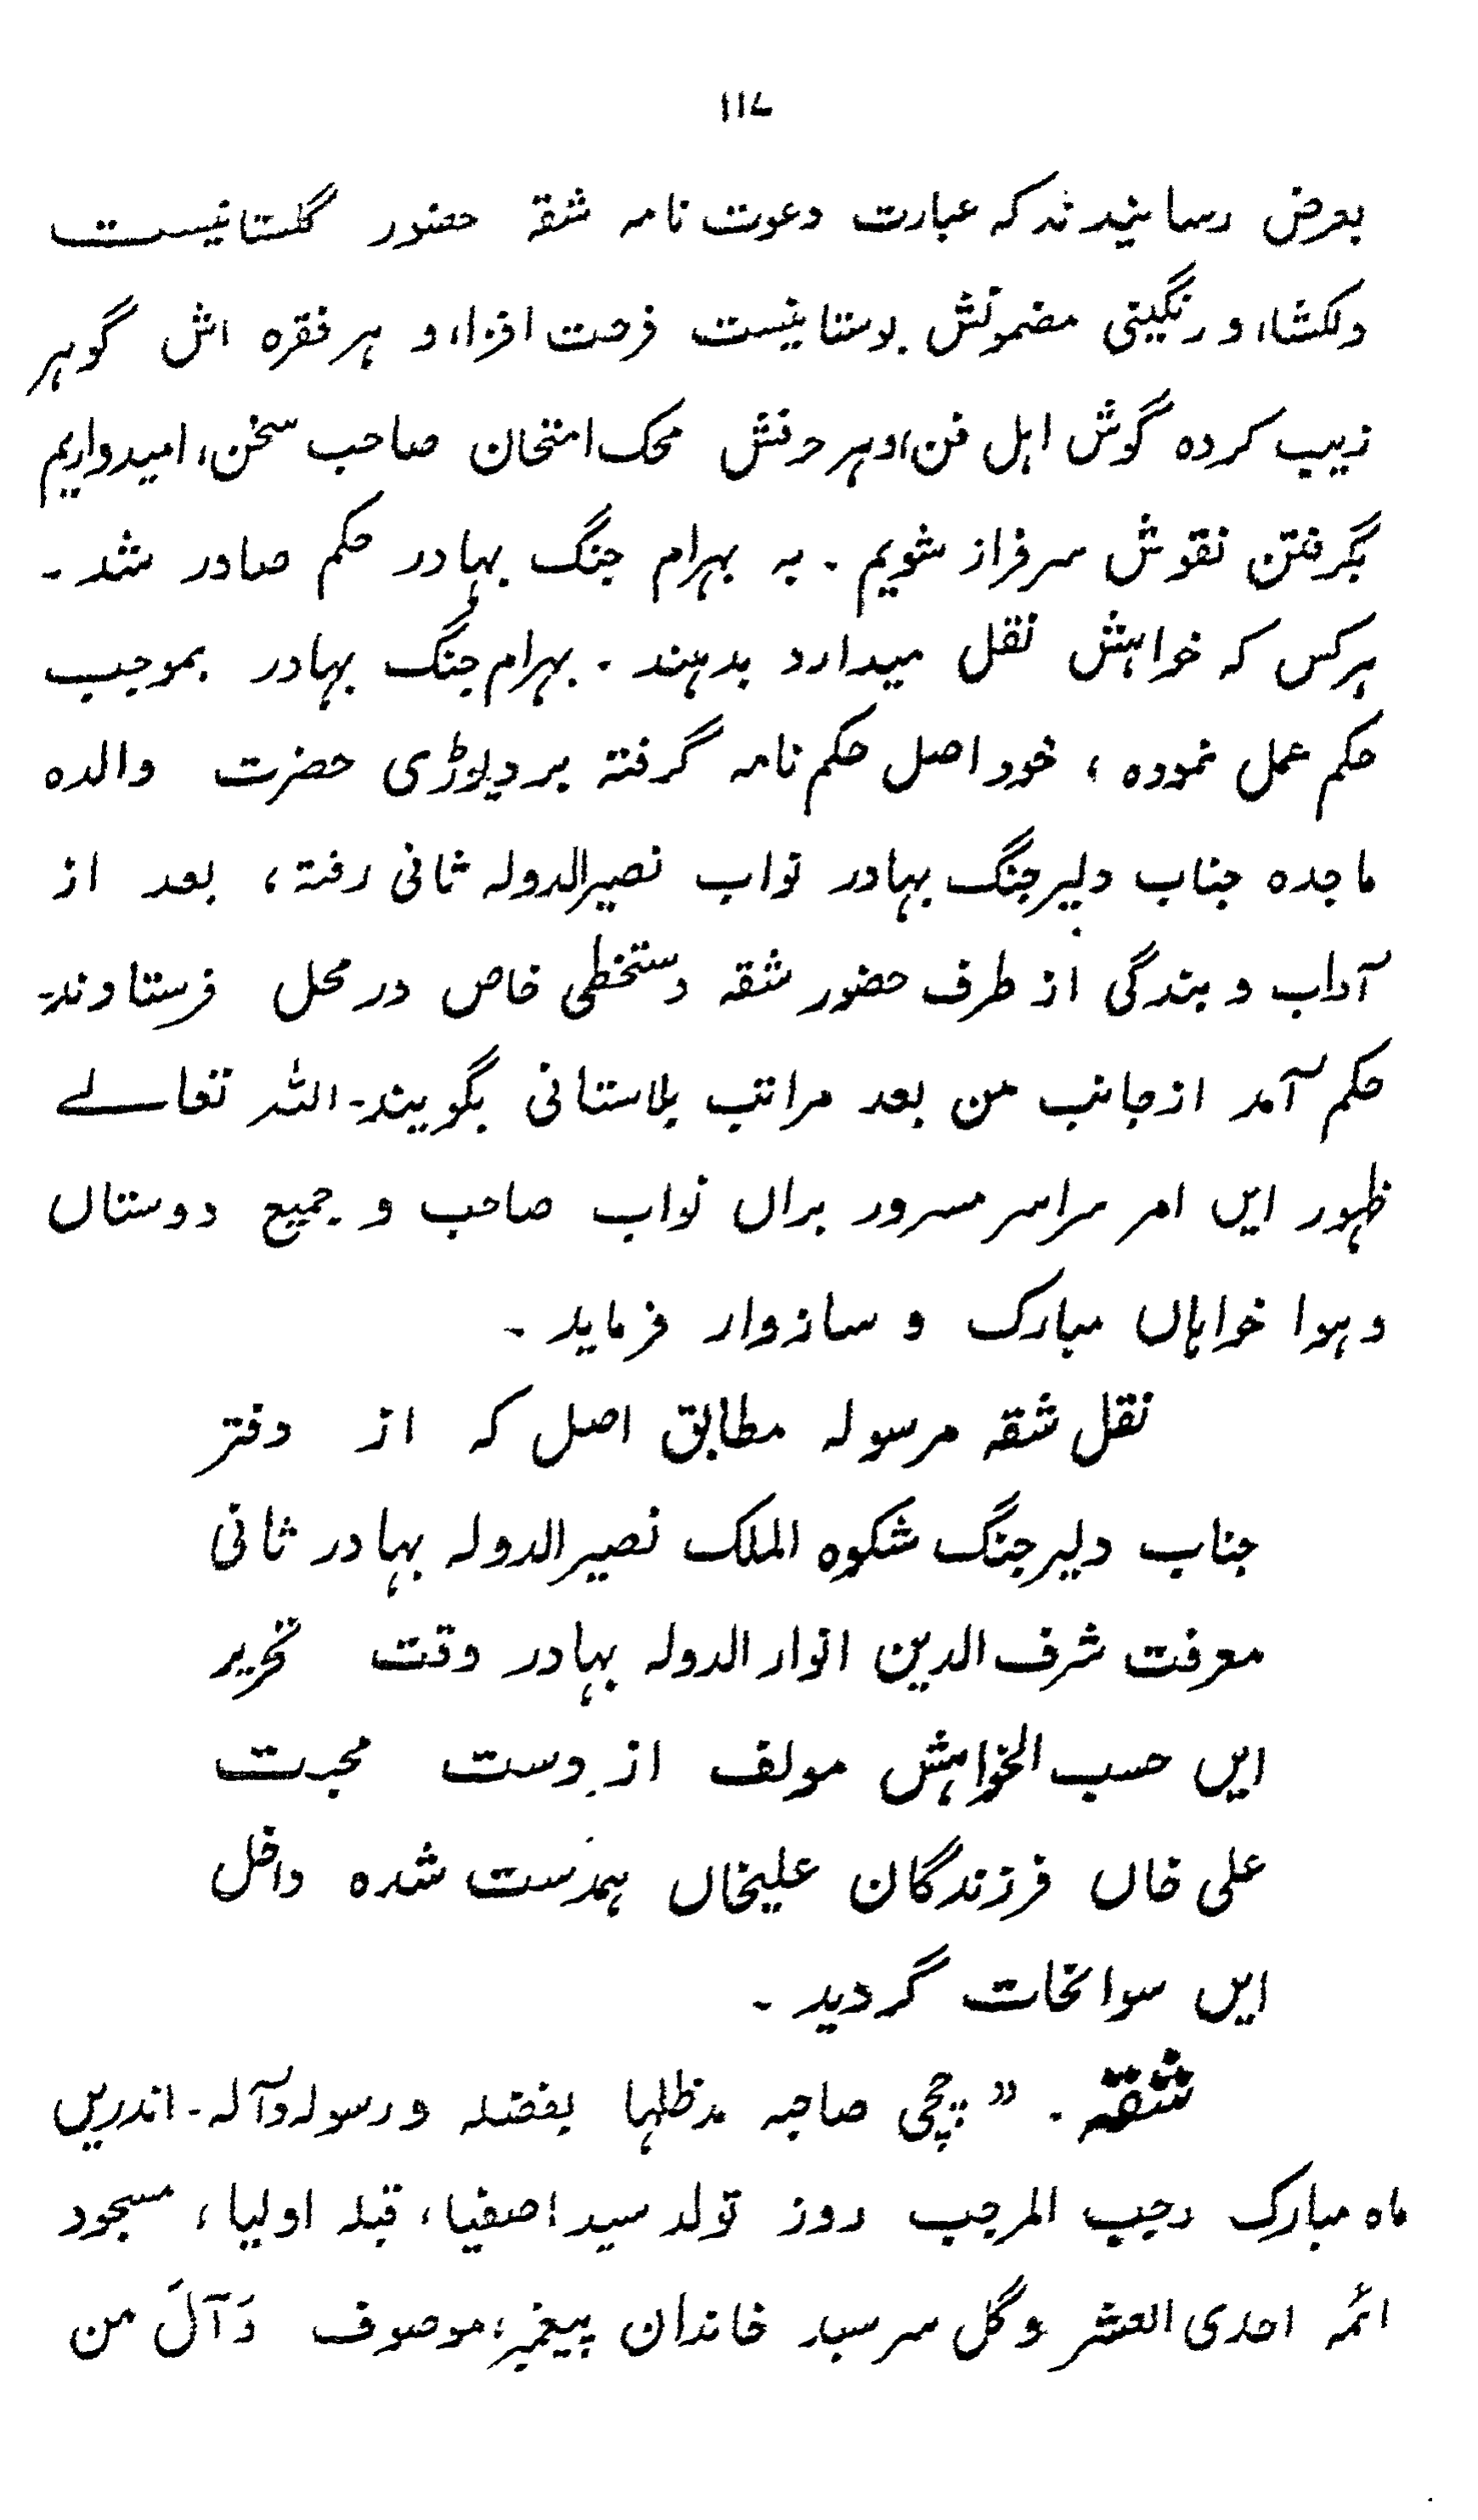 ۱۱۷
بعرض رسانیدند که عبارت دعوت نامہ شقہ حضور گلستانیست
دلکشا، و رنگینی مضمونش بوستانیست فرحت افزا، و ہر فقرہ اش گوہر
زیب کردہ گوش اہل فن، وہر حرفش محک امتحان صاحب سخن، امیدواریم
بگرفتن نقوش سرفراز شویم ۔ بہ بہرام جنگ بہادر حکم صادر شد ۔
ہرکس کہ خواہش نقل میدارد بدہند ۔ بہرام جنگ بہادر بموجب
حکم عمل نمودہ، خود اصل حکم نامہ گرفتہ بر دیوڑی حضرت والدہ
ماجدہ جناب دلیر جنگ بہادر نواب نصیر الدولہ ثانی رفتہ، بعد از
آداب و بندگی از طرف حضور شقہ دستخطی خاص در محل فرستادند۔
حکم آمد از جانب من بعد مراتب بلاستانی بگویند۔ اللہ تعالے
ظہور ایں امر سراسر مسرور براں نواب صاحب و جمیع دوستاں
و ہوا خواہاں مبارک و سازوار فرماید ۔
نقل شقہ مرسولہ مطابق اصل کہ از دفتر
جناب دلیر جنگ شکوہ الملک نصیر الدولہ بہادر ثانی
معرفت شرف الدین انوار الدولہ بہادر وقت تحریر
ایں حسب الخواہش مولف از دست محبت
علی خاں فرزندگان علیخاں ہمدست شدہ داخل
ایں سوانحات گردید ۔
شقہ ۔ " چچی صاحبہ مدظلہا بفضلہ و رسولہ وآلہ ۔ اندریں
ماہ مبارک رجب المرجب روز تولد سید اصفیا، قبلہ اولیا، مسجود
ائمہ احدی العشر و گل سر سبد خاندان پیغمبر، موصوف وَآلَ من